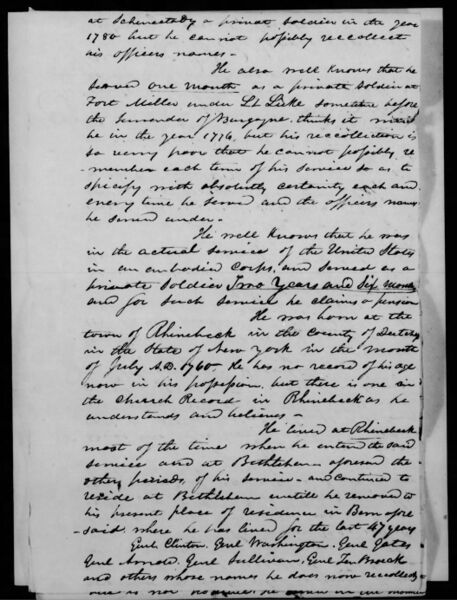 at Schenectady a private soldier in the year
1780 but he cannot possibly recollect
his officers names -
He also well knows that he
served one month as a private soldier at
Fort Miller under Lt Liske sometime before
the surrender of Burgoyne. thinks it must
be in the year 1776, but his recollection is
so very poor that he cannot possibly re-
-member each term of his service so as to
specify with absolutly certainty each and
every time he served and the officers names
he served under. -
He well knows that he was
in the actual service of the United States
in an embodied Corps, and served as a
private soldier Two Years and Six months
and for such service he claims a pension
He was born at the
town of Rhinebeck in the County of Dutchess
in the State of New York in the month
of July A.D. 1760. He has no record of his age
now in his possession, but there is one in
the Church Record in Rhinebeck as he
understands and believes -
He lived at Rhinebeck
most of the time when he entered said
service and at Bethlehem aforesaid the
other periods of his service - and continued to
reside at Bethlehem untill he removed to
his present place of residence in Bern afore
-said, where he has lived for the last 47 years
Genl Clinton, Genl Washington, Genl Gates
Genl Arnold, Genl Sullivan, Genl Ten Broeck
and others whose names he does now recollect